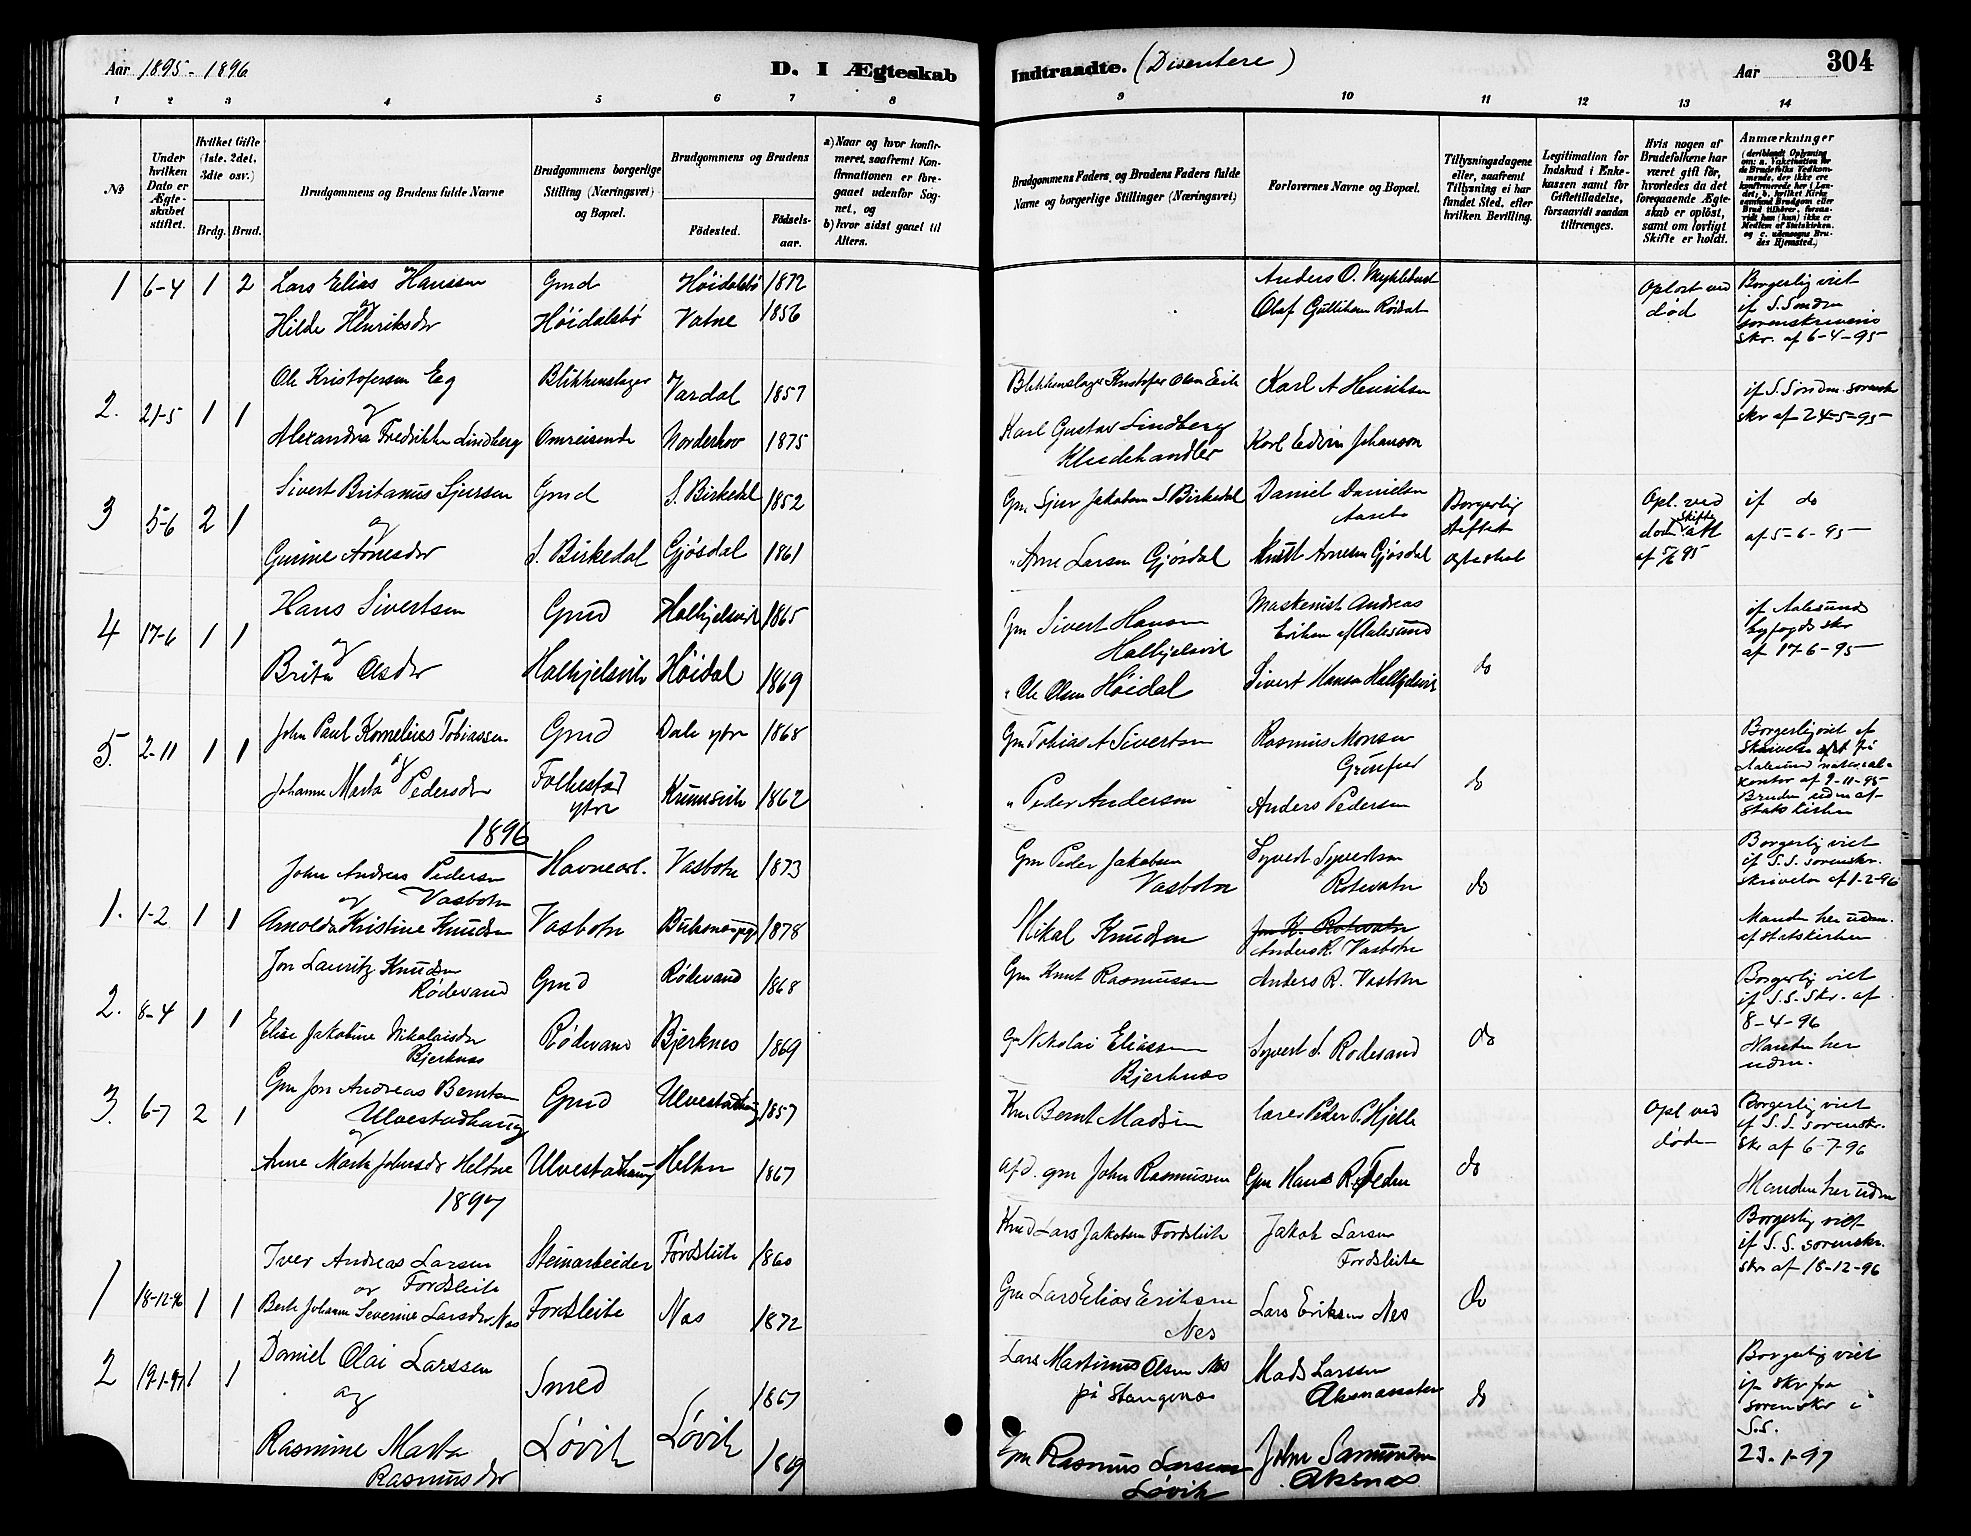 Aar 1895-1896
D. I Ægteskab
Indtraadte. (Disentere)
Aar
304
1 2 3 4 5 6 7 8
9 10 11 12 13 14
No
Under hvilken Dato er Ægteskabet stiftet.
Hvilket Gifte (1ste, 2det, 3die osv.)
Brdg. Brud.
Brudgommens og Brudens fulde Navne
Brudgommens borgerlige Stilling (Næringsvei) og Bopæl.
Brudgommens og Brudens
Fødested. Fødselsaar.
a) Naar og hvor konfirmeret, saafremt Konfirmationen er foregaaet udenfor Sognet, og
b) hvor sidst gaaet til Alters.
Brudgommens Faders og Brudens Faders fulde Navne og borgerlige Stillinger (Næringsvei)
Forlovernes Navne og Bopæl.
Tillysningsdagene eller, saafremt Tillysning ei har fundet Sted, efter hvilken Bevilling.
Legitimation for Indskud i Enkekassen samt for Giftetilladelse, forsaavidt saadan tiltrænges.
Hvis nogen af Brudefolkene har været gift før, hvorledes da det foregaaende Ægteskab er opløst, samt om lovligt Skifte er holdt.
Anmærkninger
1 6-4 1 2 Lars Elias Hanssen Gmd Høidalsbø 1872
Anders O. Myklebust
Opløst ved død
Borgerlig viet
og
Hilde Henriksdr Høidalsbø Vatne 1856
if S. Søndm sorenskriveris
skr. af 6-4-95
2. 21-5 1 1 Ole Kristofersen Eeg Blikkenslager Vardal 1857
Blikkenslager Kristofer Olsen
Karl A Henriksen
if S. Søndm. sorensk
skr af 24-5-95
og
Alexandra Fredrikke Lindberg Omreisende Norderhov 1875
Karl Gustav Lindberg
Kludehandler
Karl Edvin Johanson
3 5-6 2 1 Sivert Britanus Sjursen Gmd S. Birkedal 1852
Gm Sjur Jakobsen S. Birkedal
Daniel Danielsen
Borgerlig stiftet
Opl. ved
if do
af 5-6-95
og
Gurine Arnesdr S. Birkedal Gjøsdal 1861
" Arne Larsen Gjøsdal
Knut Arnesen Gjøsdal
4 17-6 1 1 Hans Sivertsen Gmd Halkjelsvik 1865
Gm Sivert Hansen
Halkjelsvik
Maskenist Andreas
Eriksen af Aalesund
if Aalesunds
byfogds skr
af 17-6-95
og
Brite Olsdr Halkjelsvik Høidal 1869
" Ole Olsen Høidal
Sivert Hansen Halkjelsvik
do
5. 2-11 1 1 John Paul Kornelius Tobiassen Gmd Dale ytre 1868
Gm Tobias A Sivertsen
Rasmus Monsen
og
Johanne Marta Pedersdr Folkestad
ytre 1862
" Peder Andersen
Anders Pedersen
do
1896
1. 1-2 1 1 John Andreas Pedersen
Vasbotn
Havnearb. Vasbotn 1873
Gm Peder Jakobsen
Vasbotn
Syvert Syvertsen
Rotevatn
do
Borgerlig viet
if S.S. sorenskr.
skrivelse af 1-2-96
og
Arnolda Kristine Knudsen Vasbotn 1878
Mikal Knudsen
Jon K. Rotevatn
Anders R. Vasbotn
Manden her udm.
af statskirken
2. 8-4 1 1 Jon Lauritz Knudsen
Rødevand
Gmd Rødevand 1868
Gm Knut Rasmussen
Anders R. Vasbotn
Borgerlig viet
if S.S. Skr. af
8-4-96
Elise Jakobine Nikolaisdr
Bjerknes
Rødevand Bjerknes 1869
Gm Nikolai Eliassen
Bjerknes
Syvert S. Rodevand
do
Manden her
udm.
3. 6-7 2 1 Gm Jon Andreas Berntsen
Ulvestadhaug
Gmd Ulvestadhaug 1857
Bernt Madsen
Lærer Peder P. Hjelle
Opl ved
døden
Borgerlig viet
if S.S. sorenskr.
skr af 6-7-96
og
Anne Marta Johnsdr Heltne Ulvestadhaug Heltne 1867
afd. gm John Rasmussen
Gm Hans R.
do
Manden her udm
1897
1 18-12-96 1 1 Iver Andreas Larsen
Fordsleite
Steinarbeider Fordsleite 1860
Lars Jakobsen Fordsleite
Jakob Larsen
Fordsleite
Borgerlig viet
if S.S. sorenskr.
skr af 18-12-96
og
Berte Johanne Severine Larsdr Nes Fordsleite Nes 1872
Gm Lars Elias Eriksen
Nes
Lars Eriksen Nes
do
2 19-1-97 1 1 Daniel Olai Larssen Smed 1867
Lars Martinus Olsen Nes
på Stangenes
Mads Larsen
do
Borgerlig viet
if skr fra
sorenskr i
S.S.
23-1-97
og
Rasmine Marta
Rasmusdr
Løvik Løvik 1869
Gm Rasmus Larsen
Løvik
John Samundsen
Aksnes